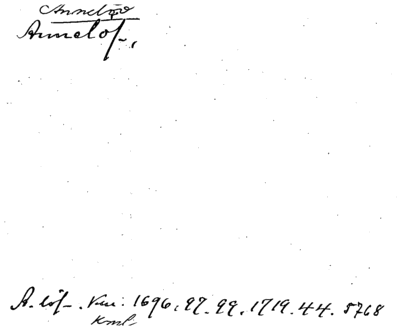 Annelöv
Annelöf,
A. löf. Km: 1696, 97. 99. 1719. 44. 5768